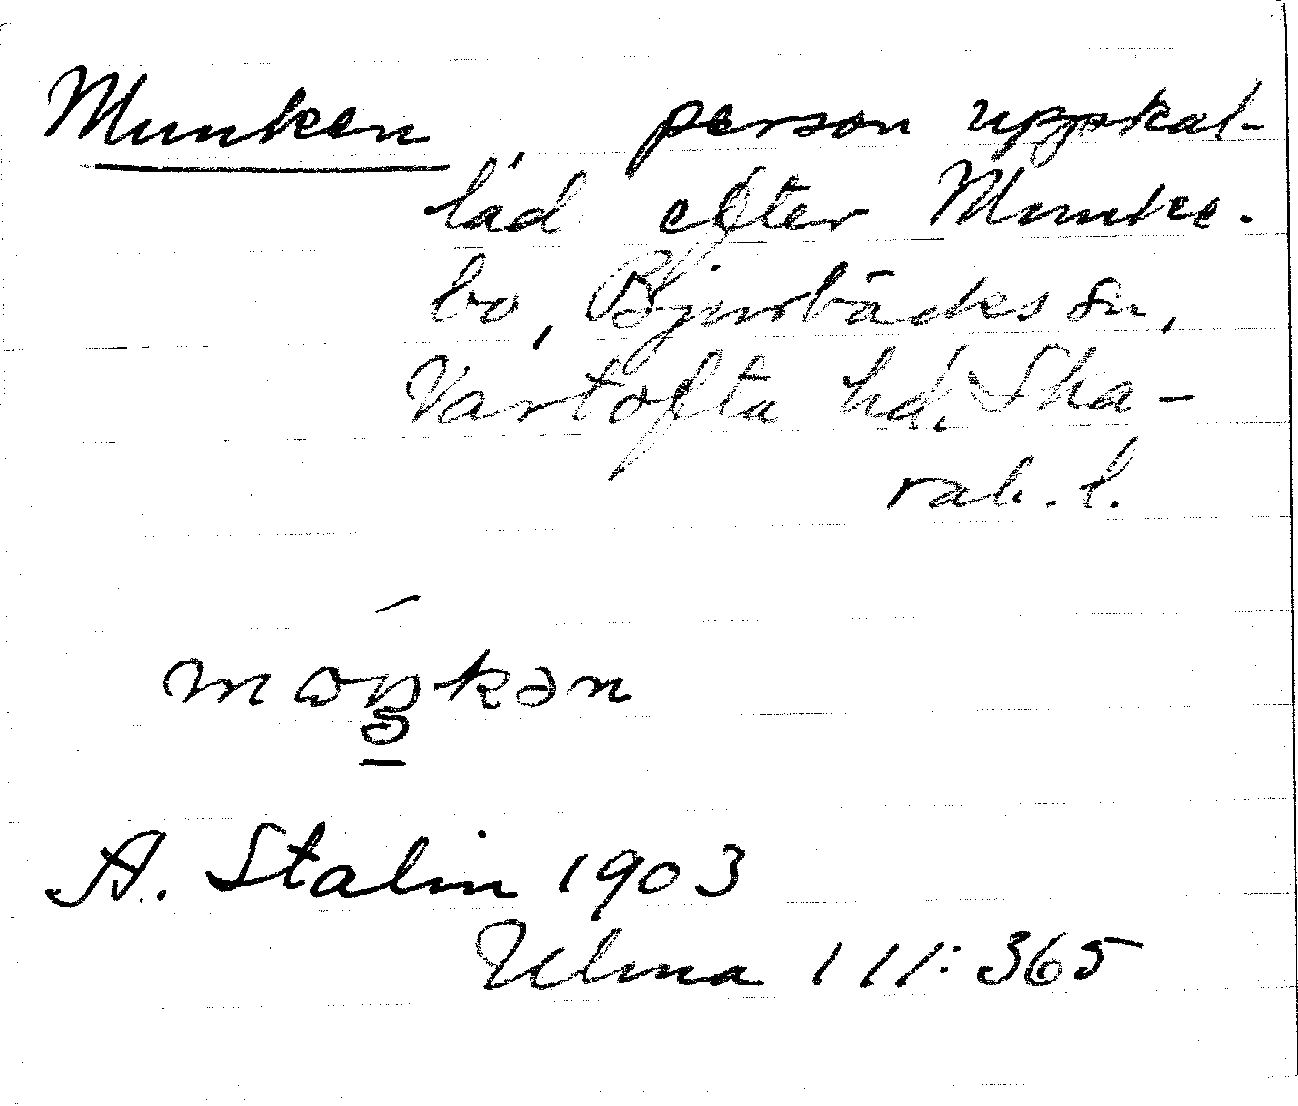 Munken, person uppkal-
lad efter Munke-
bo, Bjurbäcks sn,
Vartofta hd. Ska-
rab. l.
mɷŋkən
A. Stalin 1903
Ulma 111:365